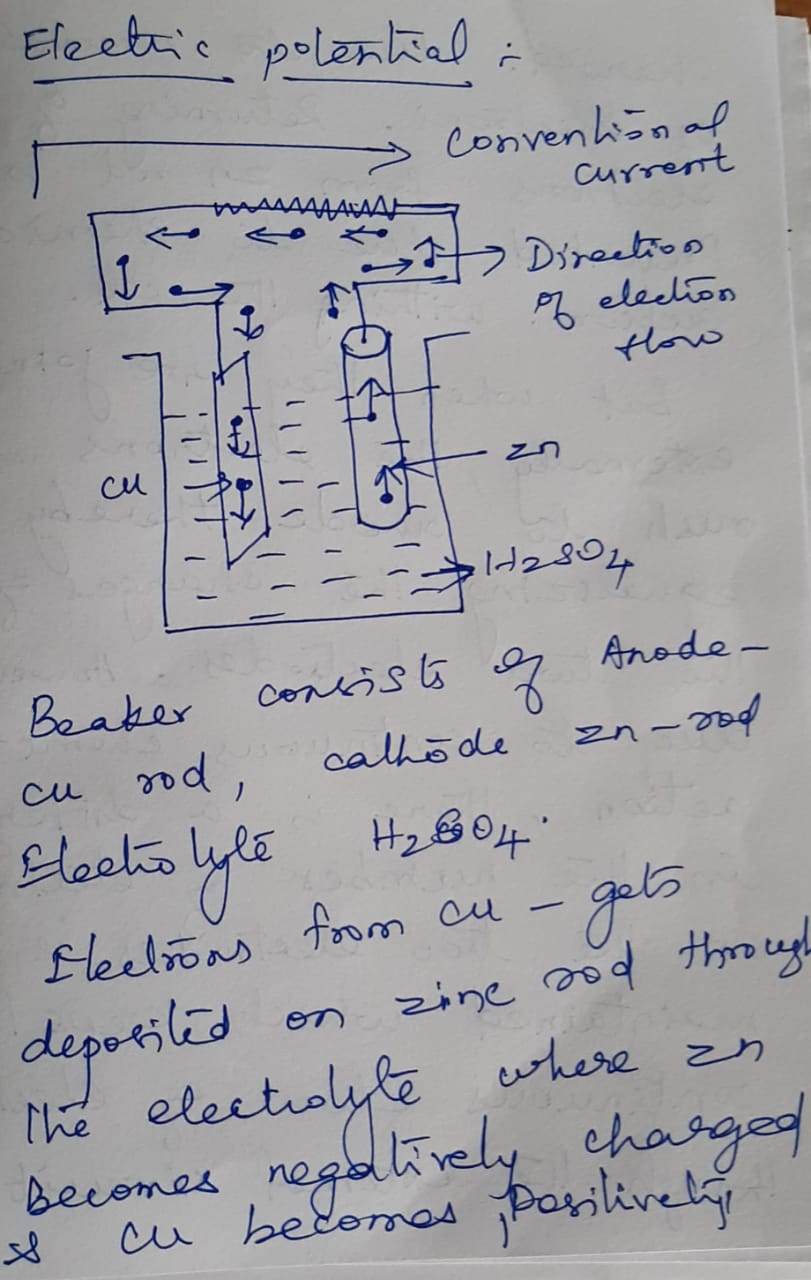 Electric potential :-
Conventional
current
Direction
of election
flow
Cu
Zn
H2SO4
Beaker consists of Anode -
Cu rod, cathode Zn-rod
Electrolyte H2SO4.
Electrons from Cu - gets
deposited on zinc rod through
the electrolyte where Zn
Becomes negatively charged
& Cu becomes, Positively,